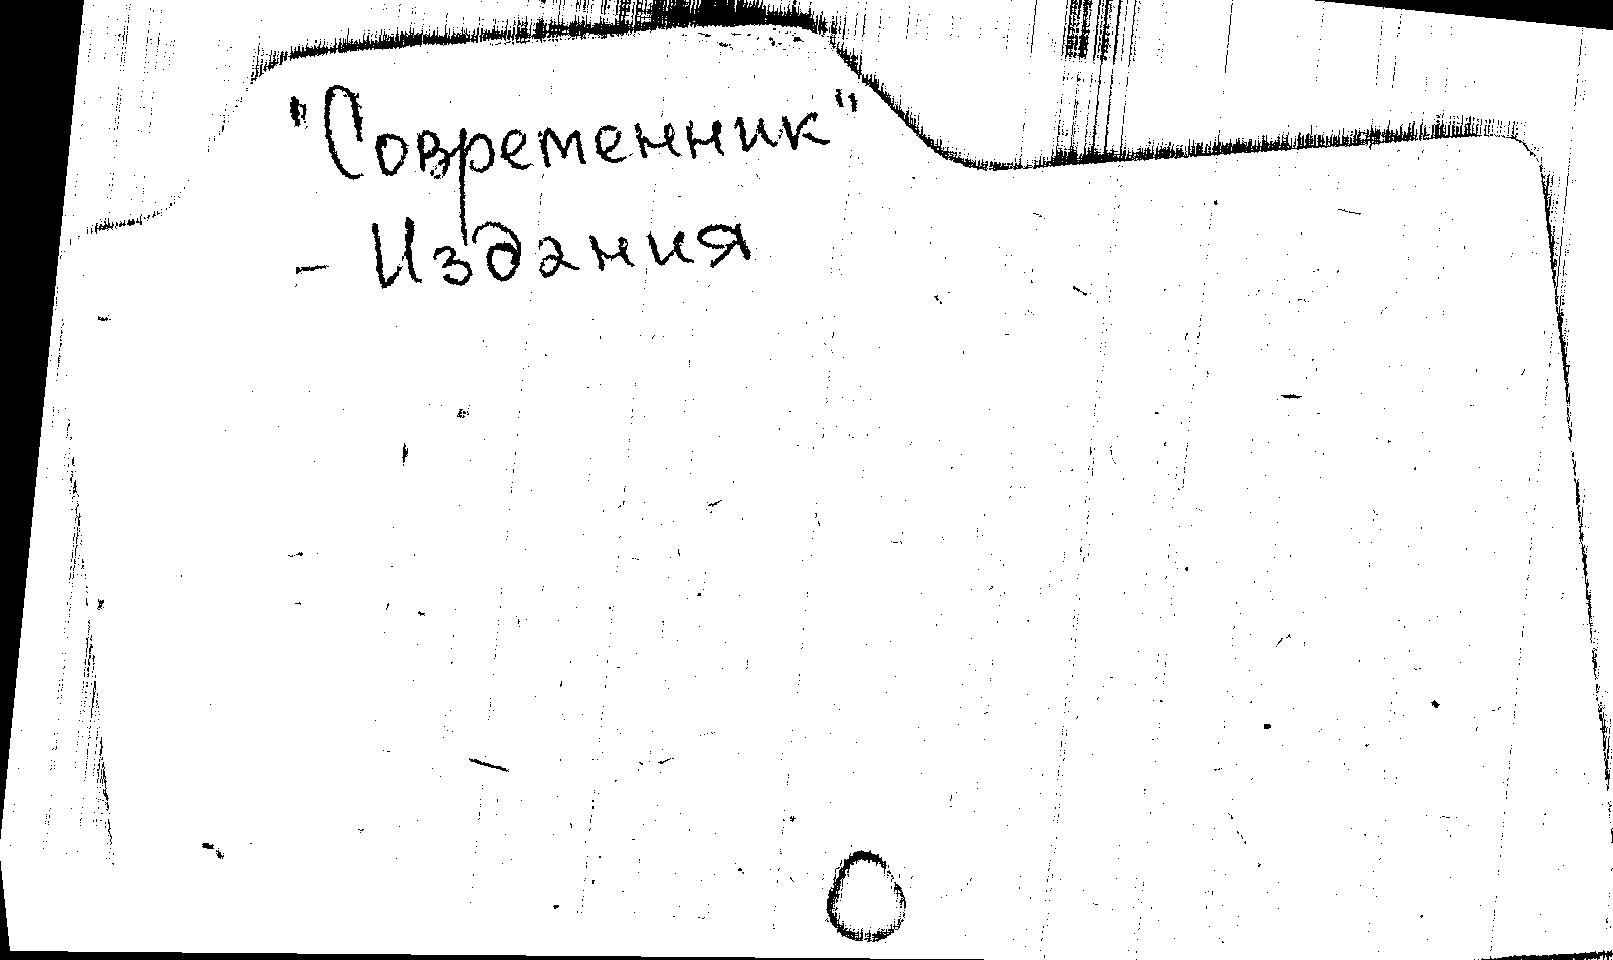 "Современник"
- Издания